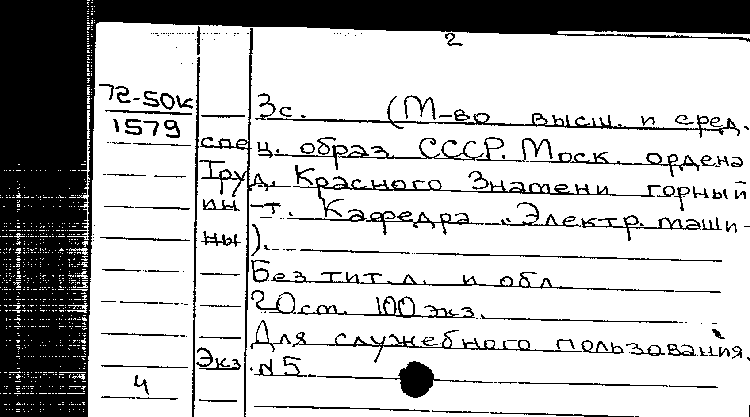 2
72-50к
1579
3с. (М-во высш. и сред.
спец. образ. СССР. Моск. ордена
Труд. Красного Знамени горный
ин-т. Кафедра "Электр. маши-
ны).
Без тит. л. и обл.
20см. 100 экз.
Для служебного пользования.
Экз. N5
4